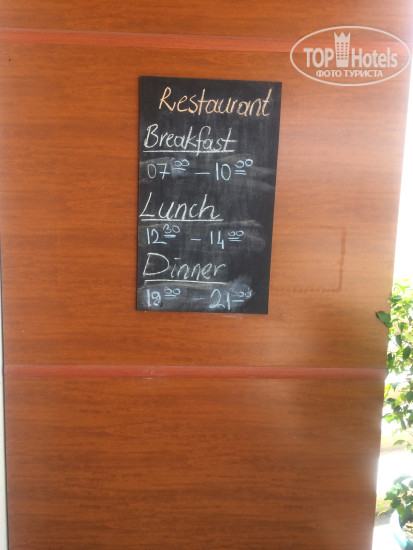 TOP Hotels
ФОТО ТУРИСТА
Restaurant
Breakfast
07 00 – 10 00
Lunch
12 30 – 14 00
Dinner
19 00 – 21 00